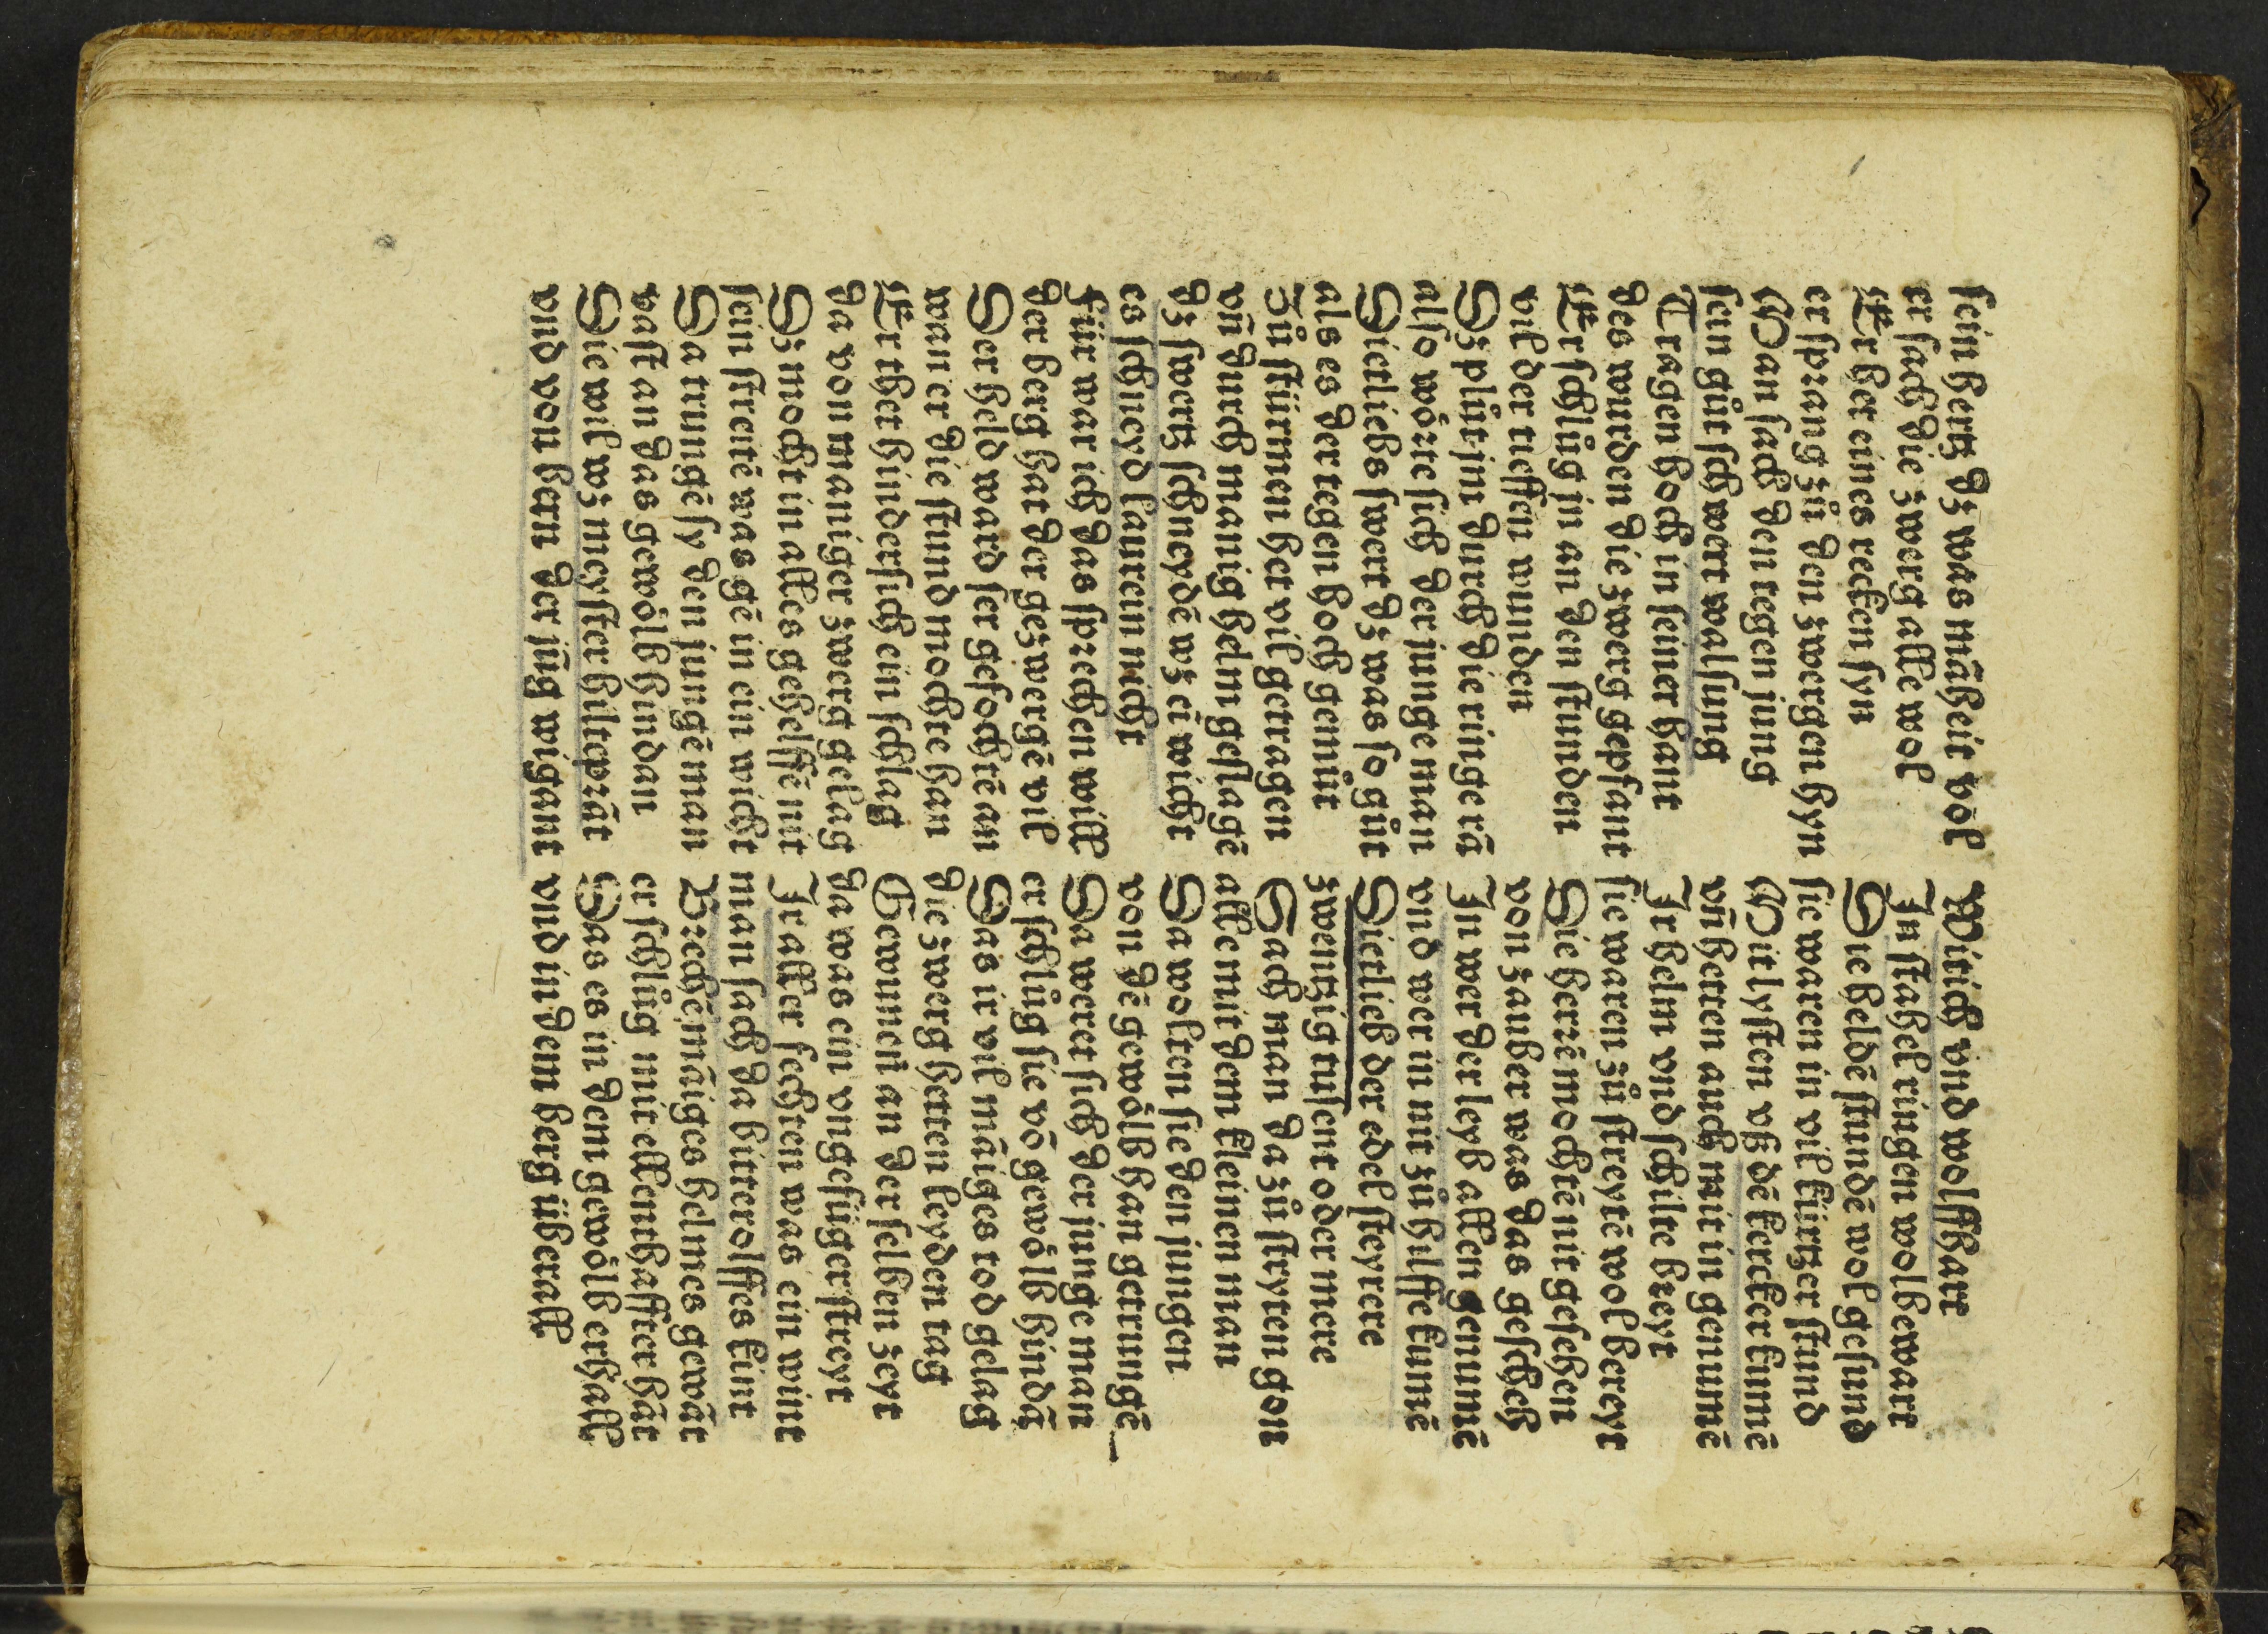 ſein hertz dz was māheit vol
er ſach die zwerg alle wol
Er her eines recken ſyn
er ſprang zů den zwergen hyn
Man ſach den tegen jung
ſein gůt ſchwert walſung
Tragen hoch in ſeiner hant
des wurden die zwerg gepfant
Er ſchlůg jn an den ſtunden
vil der tieffen wunden
Dz plůt jm durch die ringe rā
alſo wŏrte ſich der junge man
Dietliebs ſwert dz was ſo gůt
als es der tegen hoch gemůt
Zů ſtürmen her vil getragen
vñ durch manig helm geſlagē
dz ſwertz ſchneydē wz ei wicht
es ſchneyd lauteim nicht
Für war ich das ſprechen will
der berg hat der gezwergē vil
Der held ward ſer gefochtē an
wan er die ſtund mochte han
Er thet hinder ſich ein ſchlag
da von maniger zwerg gelag
Dz mocht in alles gehelffē nit
ſein ſtreitē was gē in ein wicht
Da trungē ſy den jungē man
vaſt an das gewŏlb hindan
Die wil wz meyſter hilteprāt
vnd von bern der jūg wigant
Witich vnd wolffhart
In ſtahel ringen wol bewart
Die heldē ſtundē wol geſund
ſie waren in vil kürtzer ſtund
Mit lyſten vß dē kercker kumē
vñ hetten auch mit in genumē
Ir helm vnd ſchilte breyt
ſie waren zů ſtreytē wol bereyt
Die herzē mochtē nit geſehen
von zauber was das geſcheh
In wer der leyb allen genumē
vnd wer in nit zů hilffe kumē
Dietlieb der edel ſteyrere
zwentzig tuſent oder mere
Sach man da zů ſtryten gon
alle mit dem kleinen man
Da wolten ſie den jungen
von dē gewŏlb han getrungē
Da weret ſich der junge man
er ſchlůg ſie vō gewŏlb hindā
Das ir vil māiges tod gelag
die zwerg hetten leyden tag
Gewunen an der ſelben zeyt
da was ein vngefüger ſtreyt
Ir aller fechten was ein wint
man ſach da bitterolffes kint
Brechē māiges helmes gewāt
er ſchlůg mit ellenthaffter hāt
Das es in dem gewŏlb erhall
vnd in dem berg überall